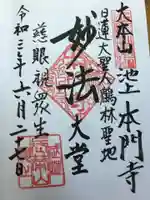 大本山 池上本門寺
日蓮大聖人鶴林聖地
妙法 大堂
慈眼視衆生
令和三年六月二十七日